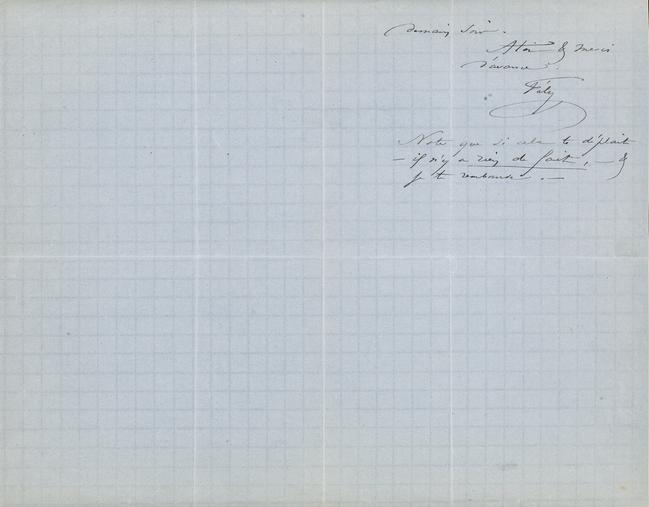 demain soir.
A toi & merci
d'avance.
Fély
Note que si cela te déplait
– il n'y a rien de fait, – &
je te rembourse. –